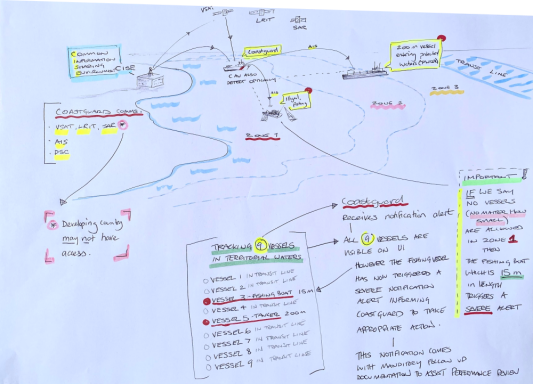 VSAT
LRIT
SAR
COMMON
INFORMATION
SHARING
ENVIRONMENT
CISE
Coastguard
CAN ALSO
DETECT OPTICALLY
AIS
AIS
200m vessel
entering protected
waters
TRANSIT LINE
ZONE 3
ZONE 2
ZONE 1
Illegal
fishing
COASTGUARD COMMS
- VSAT, LRIT, SAR
- AIS
- DSC
Developing country
may not have
access.
TRACKING 9 VESSELS
IN TERRITORIAL WATERS
VESSEL 1 IN TRANSIT LINE
VESSEL 2 IN TRANSIT LINE
VESSEL 3 - FISHING BOAT 15m
VESSEL 4 IN TRANSIT LINE
VESSEL 5 - TANKER 200m
VESSEL 6 IN TRANSIT LINE
VESSEL 7 IN TRANSIT LINE
VESSEL 8 IN TRANSIT LINE
VESSEL 9 IN TRANSIT LINE
Coastguard
RECEIVES NOTIFICATION ALERT
ALL 9 VESSELS ARE
VISIBLE ON UI
HOWEVER THE FISHING VESSEL
HAS NOW TRIGGERED A
SEVERE NOTIFICATION
ALERT INFORMING
COASTGUARD TO TAKE
APPROPRIATE ACTION.
THIS NOTIFICATION COMES
WITH MANDATORY FOLLOW UP
DOCUMENTATION TO ASSIST PERFORMANCE REVIEW
IMPORTANT
IF WE SAY
NO VESSELS
(NO MATTER HOW
SMALL)
ARE ALLOWED
IN ZONE 1
THEN
THE FISHING BOAT
WHICH IS 15m
IN LENGTH
TRIGGERS A
SEVERE ALERT